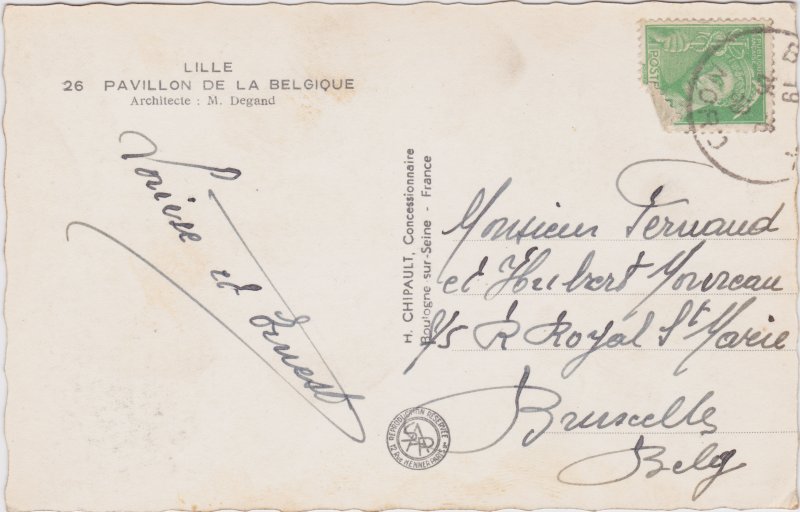 LILLE
26 PAVILLON DE LA BELGIQUE
Architecte : M. Degand
Louise et Ernest
H. CHIPAULT, Concessionnaire
Boulogne-sur-Seine - France
Monsieur Fernand
et Hubert Moureau
R Royal St Marie
Bruxelles
Belg
REPRODUCTION RESERVEE
12 Rue HENNER PARIS
POSTE
NORD